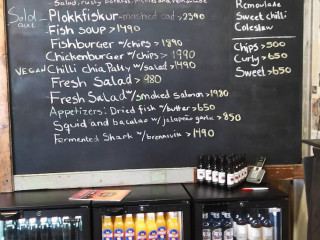 Salad, rusty potatoes, pickles and remoulade
Sold out
Plokkfiskur - mashed cod >2390
Fish soup >1490
Fishburger w/chips >1890
Chickenburger w/chips > 1990
VEGAN Chilli chia Patty w/salad >1490
Fresh Salad > 980
Fresh Salad w/smoked salmon >1980
Appetizers: Dried fish w/butter >650
Squid and bacalao w/jalapeño garlic > 850
Fermented Shark w/brennivín > 1490
Remolade
Sweet chilli
Coleslaw
Chips >500
Curly >650
Sweet >650